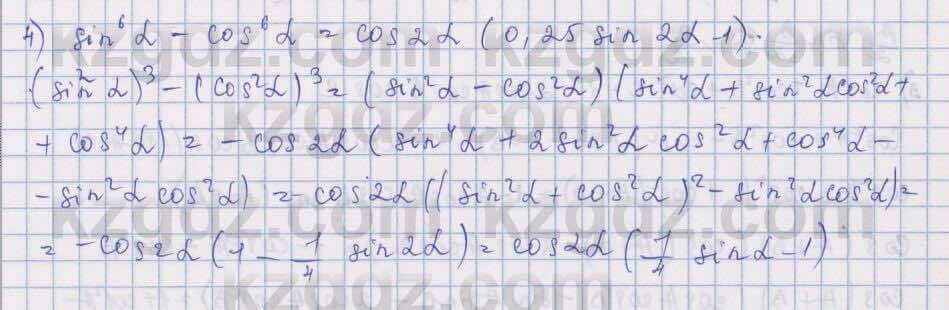 4) sin⁶α - cos⁶α = cos2α (0,25 sin 2α - 1).
(sin²α)³ - (cos²α)³ = (sin²α - cos²α) (sin⁴α + sin²α cos²α +
+ cos⁴α) = - cos2α (sin⁴α + 2sin²α cos²α + cos⁴α -
- sin²α cos²α) = -cos2α ((sin²α + cos²α)² - sin²α cos²α) =
= -cos2α (1 - 1/4 sin2α) = cos2α (1/4 sinα - 1)
kzgdz.com